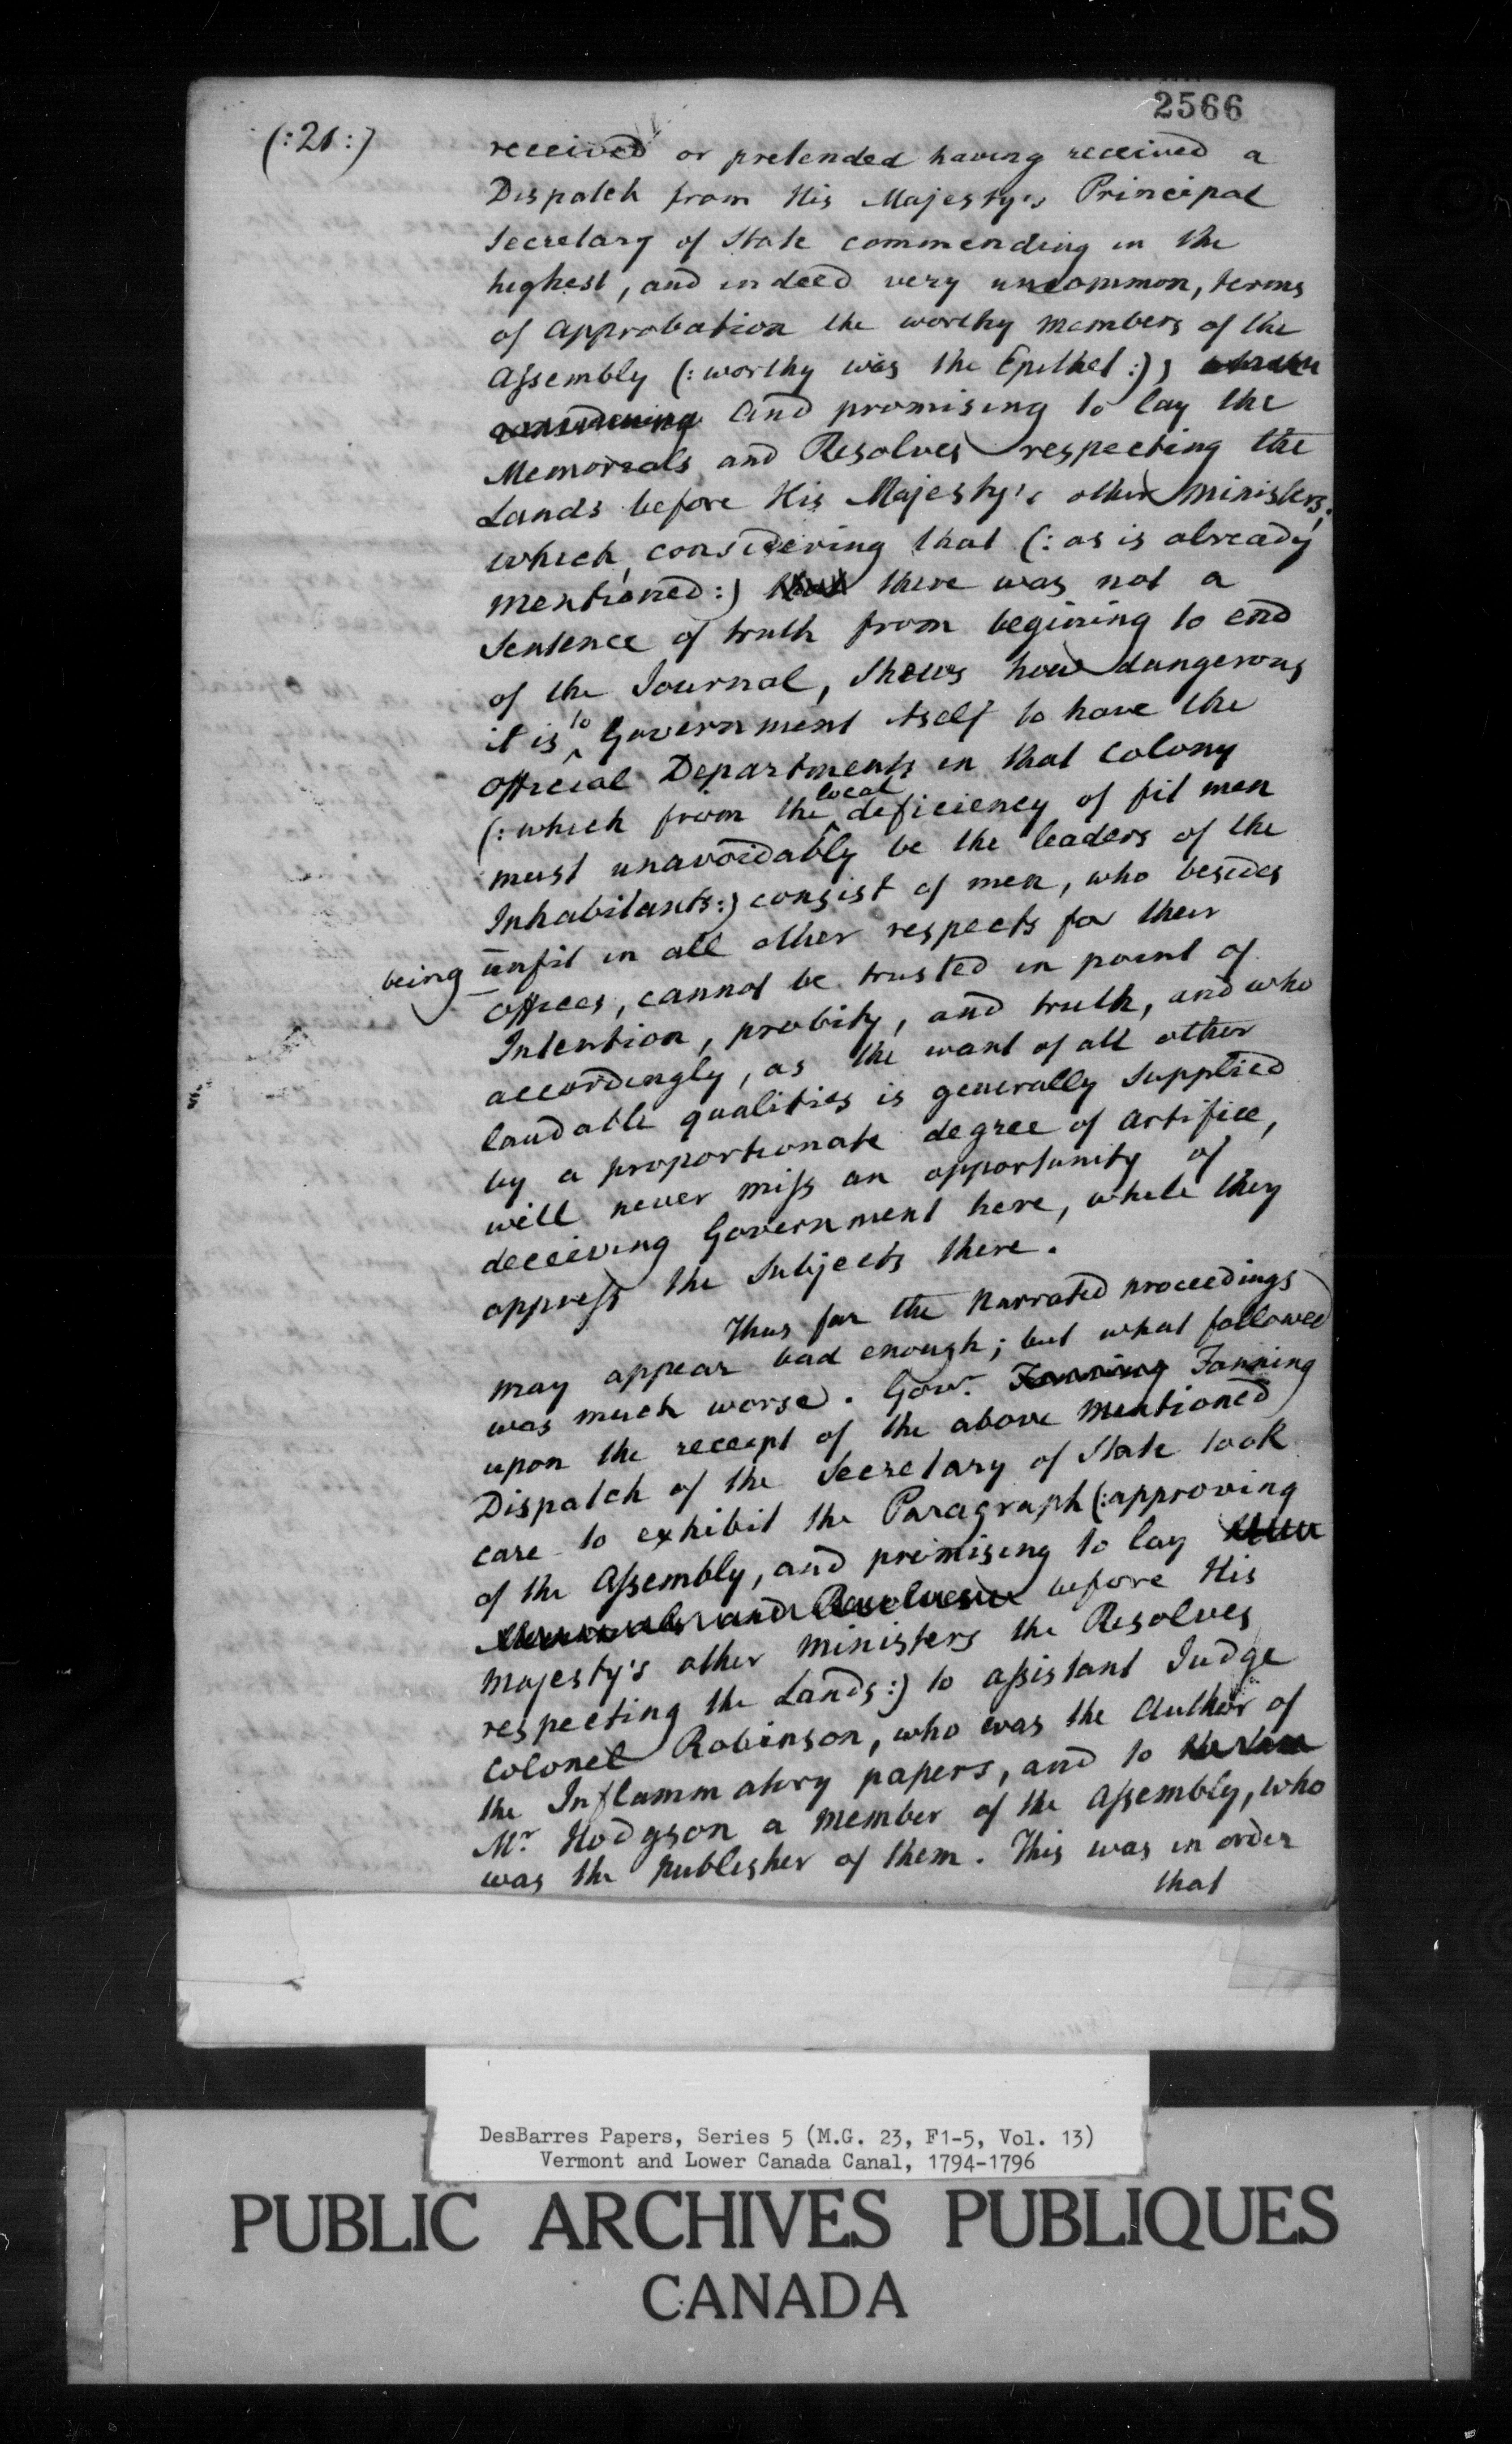 2566
(:21:)
received or pretended having received a
Dispatch from His Majesty's Principal
Secretary of State commending in the
highest, and indeed very uncommon, terms
of approbation the worthy members of the
Assembly (:worthy was the Epithet:),
considering and promising to lay the
Memorials and Resolves respecting the
Lands before His Majesty's other Ministers;
which, considering that (:as is already
mentioned:) that there was not a
Sentence of truth from begining to end
of the Journal, shews how dangerous
it is to Government itself to have the
Official Departments in that Colony
(:which from the local deficiency of fit men
must unavoidably be the leaders of the
Inhabitants:) consist of men, who besides
being unfit in all other respects for their
offices, cannot be trusted in point of
Intention, probity, and truth, and who
accordingly, as the want of all other
laudable qualities is generally supplied
by a proportionate degree of artifice,
will never miss an opportunity of
deceiving Government here, while they
oppress the Subjects there.
Thus far the Narrated proceedings
may appear bad enough; but what followed
was much worse. Govr. Fanning Fanning
upon the receipt of the above mentioned
Dispatch of the Secretary of State took
care to exhibit the Paragraph (:approving
of the Assembly, and promising to lay
Memorials and Resolves before His
Majesty's other Ministers the Resolves
respecting the Lands:) to assistant Judge
Colonel Robinson, who was the Author of
the Inflammatory papers, and to
Mr. Hodgson a member of the Assembly, who
was the publisher of them. This was in order
that
DesBarres Papers, Series 5 (M.G. 23, F1-5, Vol. 13)
Vermont and Lower Canada Canal, 1794-1796
PUBLIC ARCHIVES PUBLIQUES
CANADA